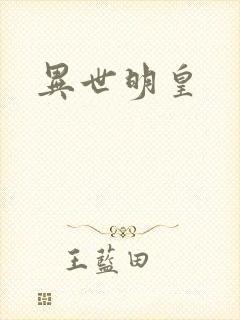 異世明皇
王藍田